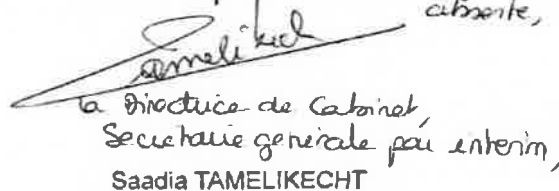 absente,
Tamelikecht
La Directrice de Cabinet,
Secretaire generale par interim,
Saadia TAMELIKECHT